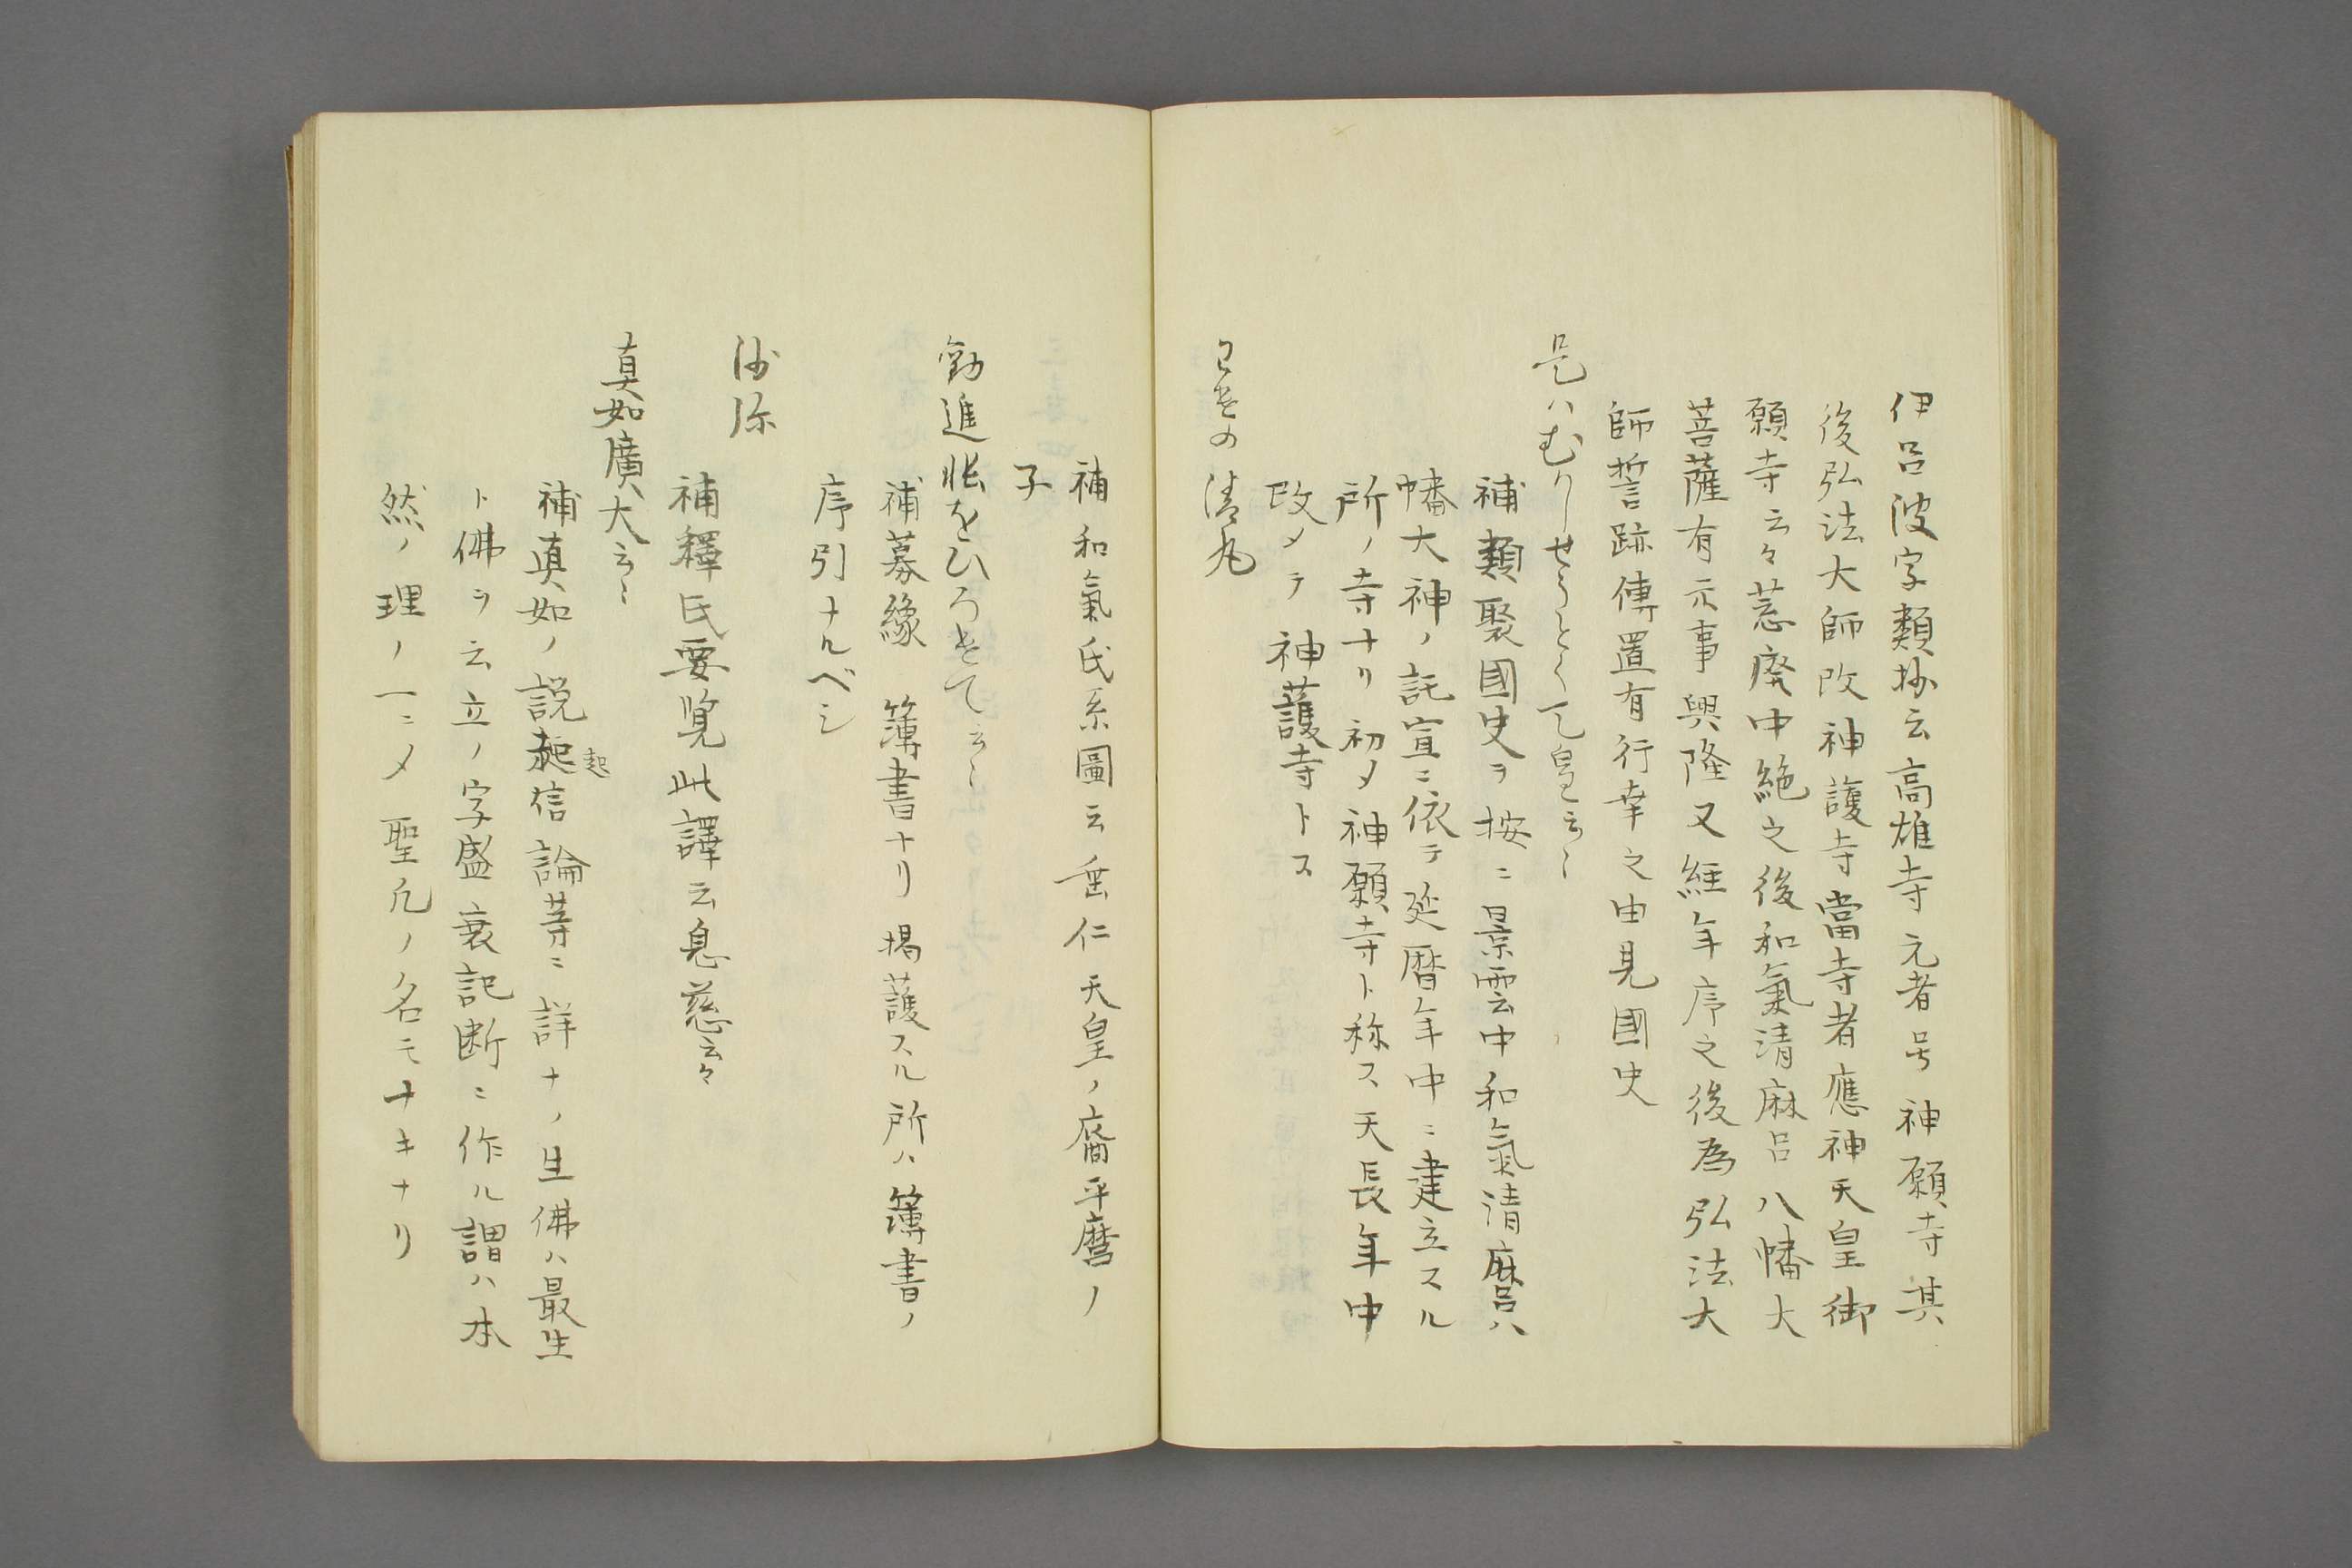 伊呂波字類抄云高雄寺元者号神願寺其
後弘法大師改神護寺當寺者應神天皇御
願寺云々荒廃中絶之後和氣清麻呂八幡大
菩薩有示事興隆又経年序之後為弘法大
師誓跡傳置有行幸之由見國史
是ハむかしせうとく天皇云々
補類聚國史ヲ按ニ景雲中和氣清麻呂八
幡大神ノ託宣ニ依テ延暦年中ニ建立スル
所ノ寺ナリ初メ神願寺ト称ス天長年中
改メテ神護寺トス
わけの清丸
補和氣氏系圖云垂仁天皇ノ裔平麿ノ
子
勧進帳をひろけて云々
補募緣簿書ナリ掲護スル所ハ簿書ノ
序引ナルベシ
沙弥
補釋氏要覧此譯云息慈云々
真如廣大云々
補真如ノ説起信論等ニ詳ナリ生佛ハ最生
起
ト佛ヲ云立ノ字盛衰記断ニ作ル謂ハ本
然ノ理ノ一ニメ聖凡ノ名モナキナリ